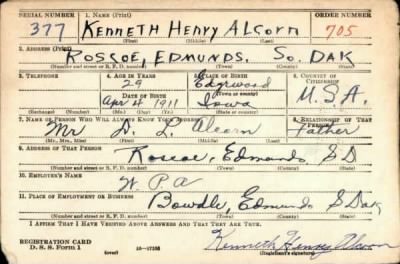 SERIAL NUMBER 1. NAME (Print) ORDER NUMBER
377 KENNETH HENRY ALCORN 705
(First) (Middle) (Last)
2. ADDRESS (Print)
ROSCOE, EDMUNDS. SO. DAK
(Number and street or R. F. D. number) (Town) (County) (State)
3. TELEPHONE 4. AGE IN YEARS 5. PLACE OF BIRTH 6. COUNTRY OF CITIZENSHIP
29 Edgewood
DATE OF BIRTH (Town or county)
Apr 4 1911 Iowa U.S.A.
(Exchange) (Number) (Mo.) (Day) (Yr.) (State or country)
7. NAME OF PERSON WHO WILL ALWAYS KNOW YOUR ADDRESS 8. RELATIONSHIP OF THAT PERSON
Mr L. Alcorn Father
(Mr., Mrs., Miss) (First) (Middle) (Last)
9. ADDRESS OF THAT PERSON
Roscoe, Edmunds S D
(Number and street or R. F. D. number) (Town) (County) (State)
10. EMPLOYER'S NAME
W. P. A
11. PLACE OF EMPLOYMENT OR BUSINESS
Bowdle, Edmunds S Dak
(Number and street or R. F. D. number) (Town) (County) (State)
I AFFIRM THAT I HAVE VERIFIED ABOVE ANSWERS AND THAT THEY ARE TRUE.
REGISTRATION CARD
D. S. S. Form 1 (over) Kenneth Henry Alcorn
(Registrant's signature)